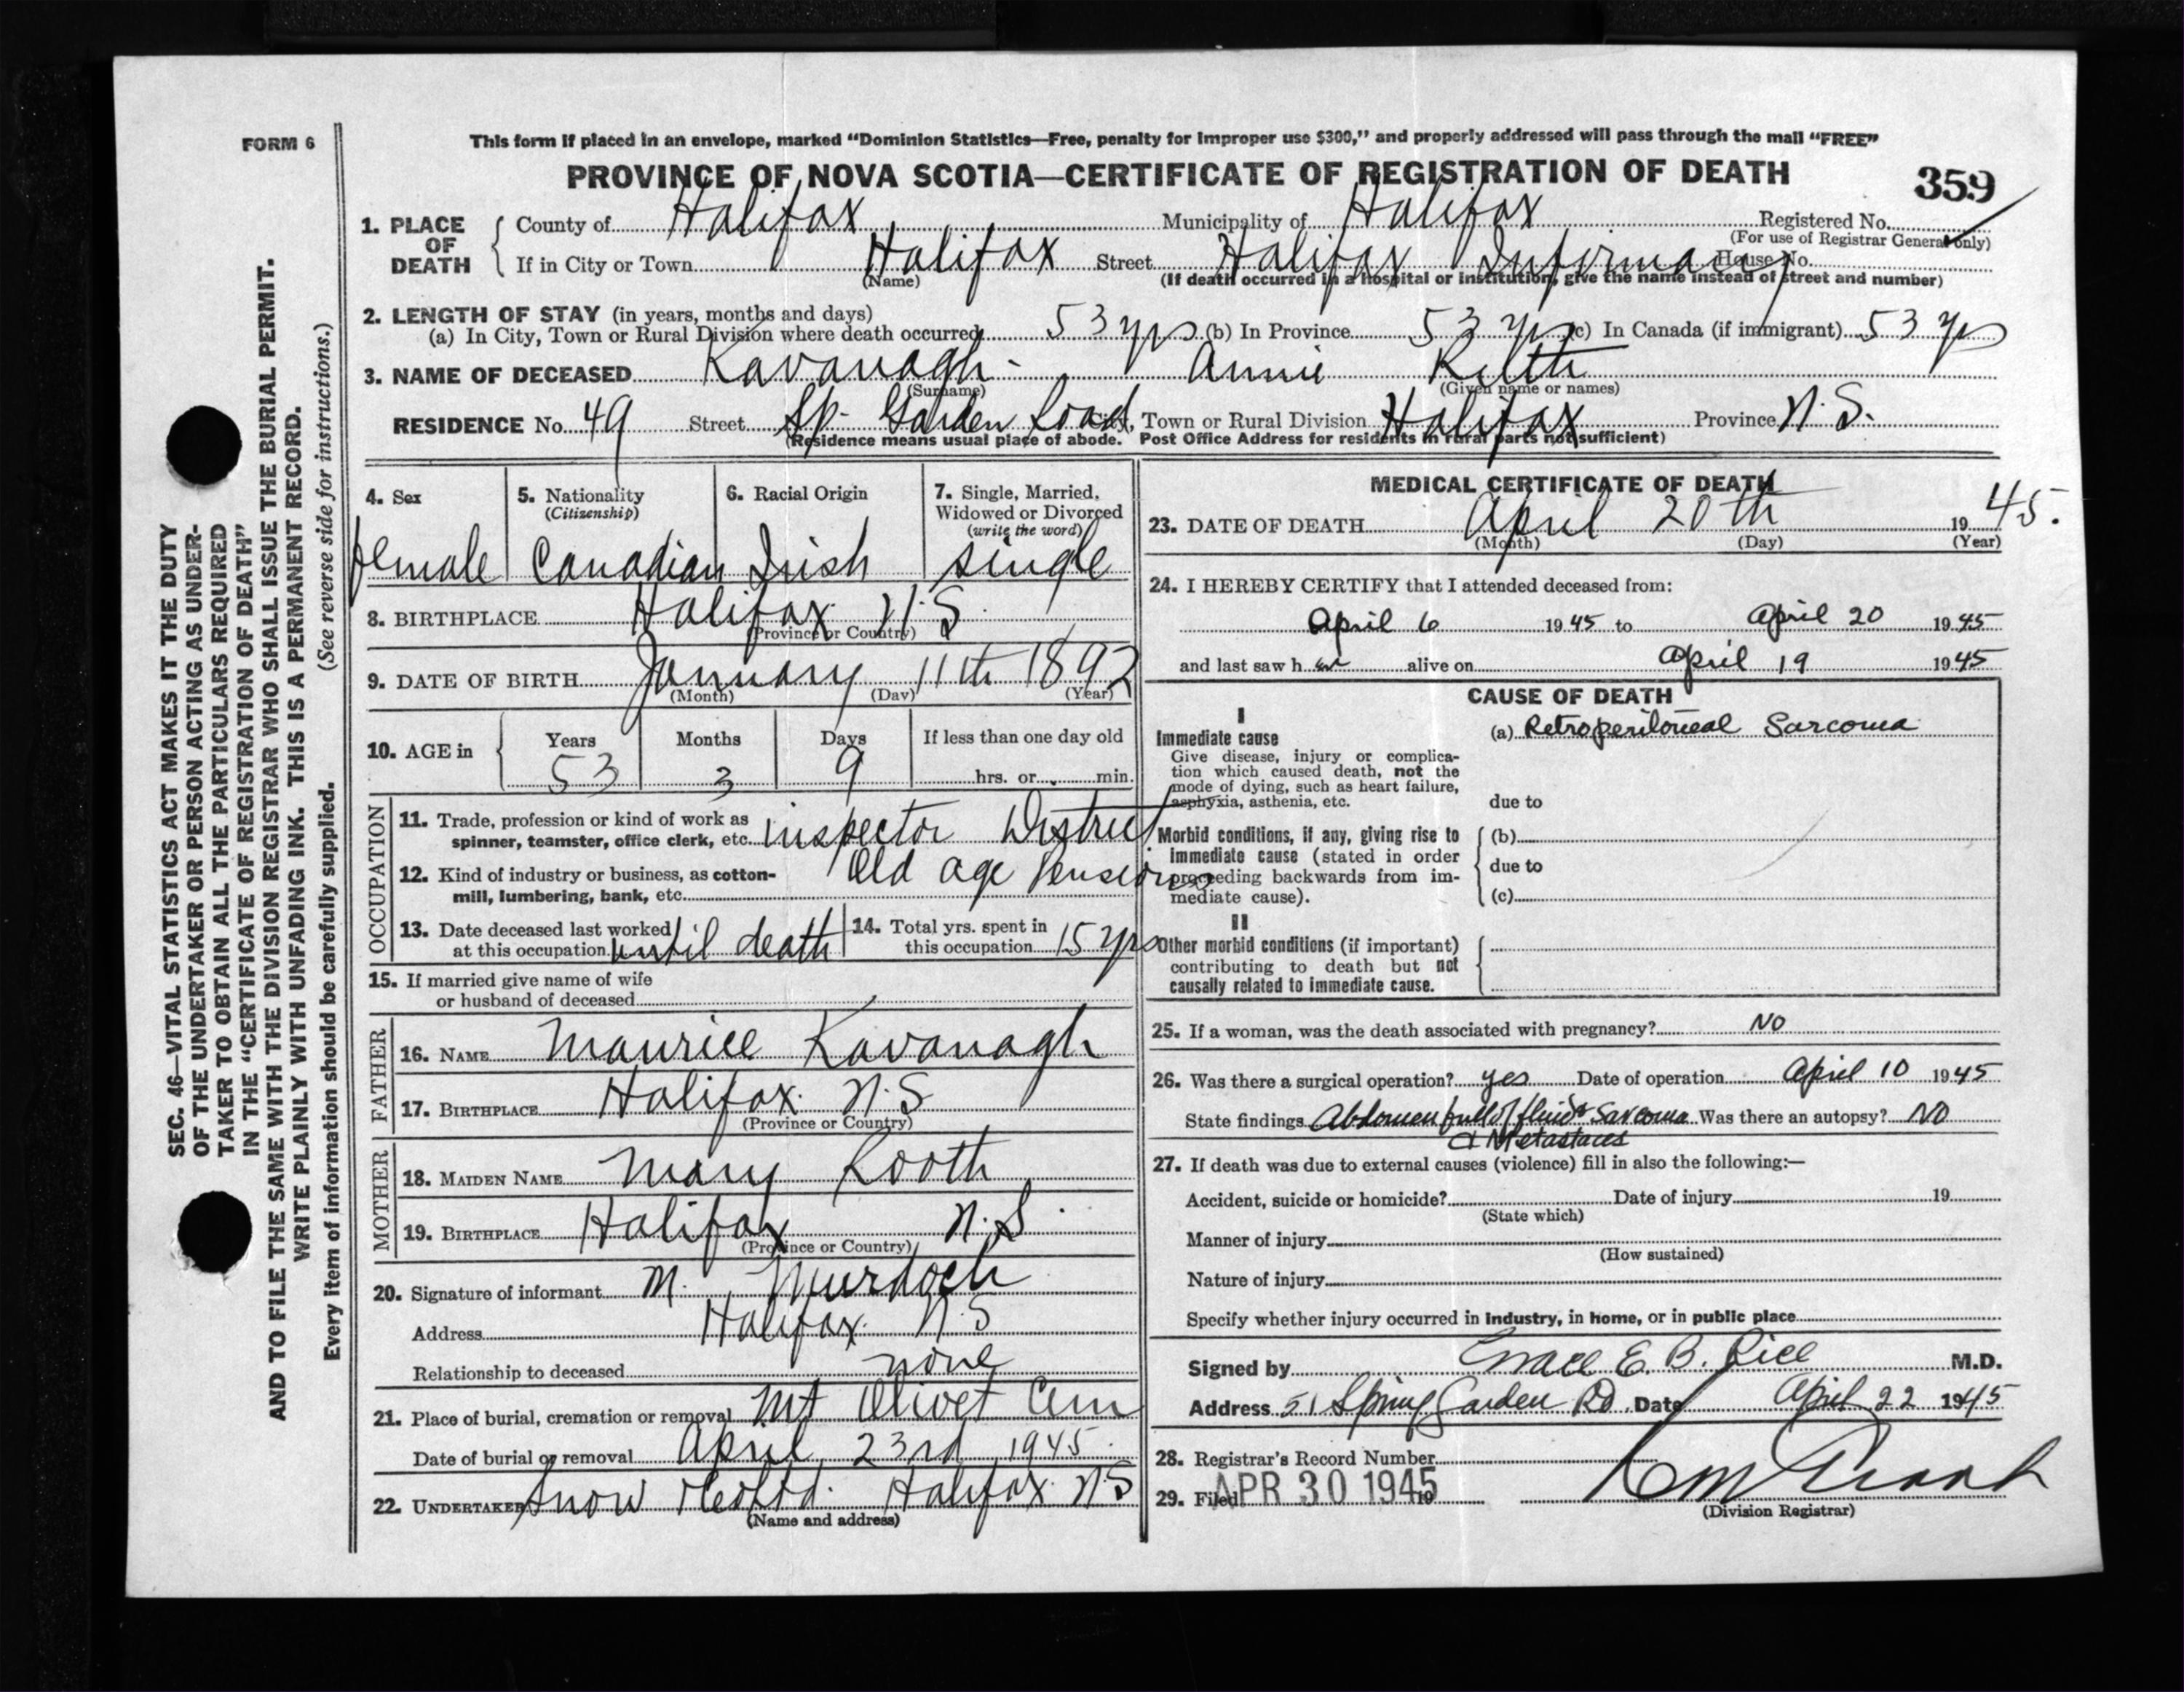 FORM 6
This form if placed in an envelope, marked “Dominion Statistics—Free, penalty for improper use $300,” and properly addressed will pass through the mail “FREE”
PROVINCE OF NOVA SCOTIA—CERTIFICATE OF REGISTRATION OF DEATH
359
1. PLACE OF DEATH
County of Halifax Municipality of Halifax Registered No.
(For use of Registrar General only)
If in City or Town Halifax Street Halifax Infirmary House No.
(Name) (If death occurred in a hospital or institution, give the name instead of street and number)
2. LENGTH OF STAY (in years, months and days)
(a) In City, Town or Rural Division where death occurred 53 yrs (b) In Province 53 yrs (c) In Canada (if immigrant) 53 yrs
3. NAME OF DECEASED Kavanagh - Annie
(Surname) (Given name or names)
RESIDENCE No. 49 Street Sp- Garden Road City, Town or Rural Division Halifax Province N.S.
(Residence means usual place of abode. Post Office Address for residents in rural parts not sufficient)
4. Sex
female
5. Nationality
(Citizenship)
Canadian
6. Racial Origin
Irish
7. Single, Married, Widowed or Divorced
(write the word)
single
8. BIRTHPLACE Halifax N.S
(Province or Country)
9. DATE OF BIRTH January 11th 1892
(Month) (Day) (Year)
10. AGE in
Years Months Days If less than one day old
53 3 9 hrs. or min.
OCCUPATION
11. Trade, profession or kind of work as
spinner, teamster, office clerk, etc. inspector District
12. Kind of industry or business, as cotton- Old age Pensions
mill, lumbering, bank, etc.
13. Date deceased last worked
at this occupation until death
14. Total yrs. spent in
this occupation 15 yrs
15. If married give name of wife
or husband of deceased
FATHER
16. NAME Maurice Kavanagh
17. BIRTHPLACE Halifax. N.S
(Province or Country)
MOTHER
18. MAIDEN NAME Mary Rooth
19. BIRTHPLACE Halifax N.S.
(Province or Country)
20. Signature of informant M. Murdoch
Address Halifax. N.S
Relationship to deceased none
21. Place of burial, cremation or removal Mt Olivet Cem
Date of burial or removal April 23rd 1945.
22. UNDERTAKER Snow &Co Ltd. Halifax. N.S
(Name and address)
MEDICAL CERTIFICATE OF DEATH
23. DATE OF DEATH April 20th 1945.
(Month) (Day) (Year)
24. I HEREBY CERTIFY that I attended deceased from:
April 6 1945 to April 20 1945
and last saw h er alive on April 19 1945
CAUSE OF DEATH
I
Immediate cause
Give disease, injury or complica-
tion which caused death, not the
mode of dying, such as heart failure,
asphyxia, asthenia, etc.
(a) Retroperitoneal Sarcoma
due to
Morbid conditions, if any, giving rise to
immediate cause (stated in order
proceeding backwards from im-
mediate cause).
(b)
due to
(c)
II
Other morbid conditions (if important)
contributing to death but not
causally related to immediate cause.
25. If a woman, was the death associated with pregnancy? NO
26. Was there a surgical operation? yes Date of operation April 10 1945
State findings Abdomen full of fluid & Sarcoma Was there an autopsy? NO
& Metastaces
27. If death was due to external causes (violence) fill in also the following:—
Accident, suicide or homicide? Date of injury 19
(State which)
Manner of injury
(How sustained)
Nature of injury
Specify whether injury occurred in industry, in home, or in public place
Signed by Grace E. B. Rice M.D.
Address 51 Spring Garden Rd Date April 22 1945
28. Registrar's Record Number
29. Filed APR 30 1945 19
(Division Registrar)
SEC. 46—VITAL STATISTICS ACT MAKES IT THE DUTY
OF THE UNDERTAKER OR PERSON ACTING AS UNDER-
TAKER TO OBTAIN ALL THE PARTICULARS REQUIRED
IN THE “CERTIFICATE OF REGISTRATION OF DEATH”
AND TO FILE THE SAME WITH THE DIVISION REGISTRAR WHO SHALL ISSUE THE BURIAL PERMIT.
WRITE PLAINLY WITH UNFADING INK. THIS IS A PERMANENT RECORD.
Every item of information should be carefully supplied. (See reverse side for instructions.)